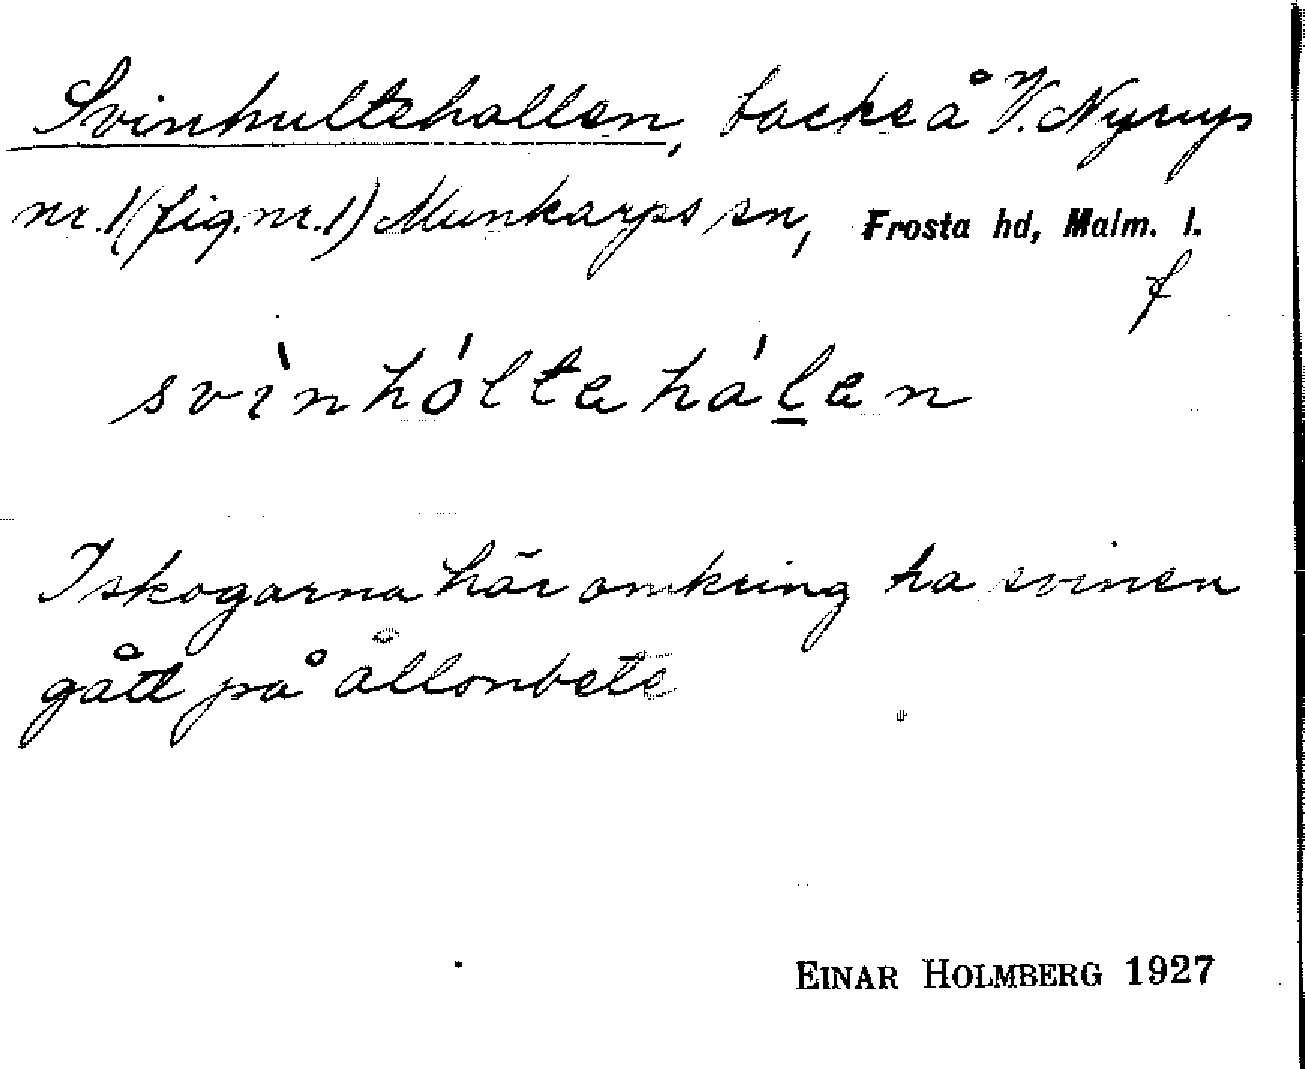 Svinhultehallen, backe å V. Nyrup
nr. 1 (fig. nr. 1) Munkarps sn, Frosta hd, Malm. l.
f
svìnhóltahálan
I skogarna här omkring ha svinen
gått på ållonbete
EINAR HOLMBERG 1927